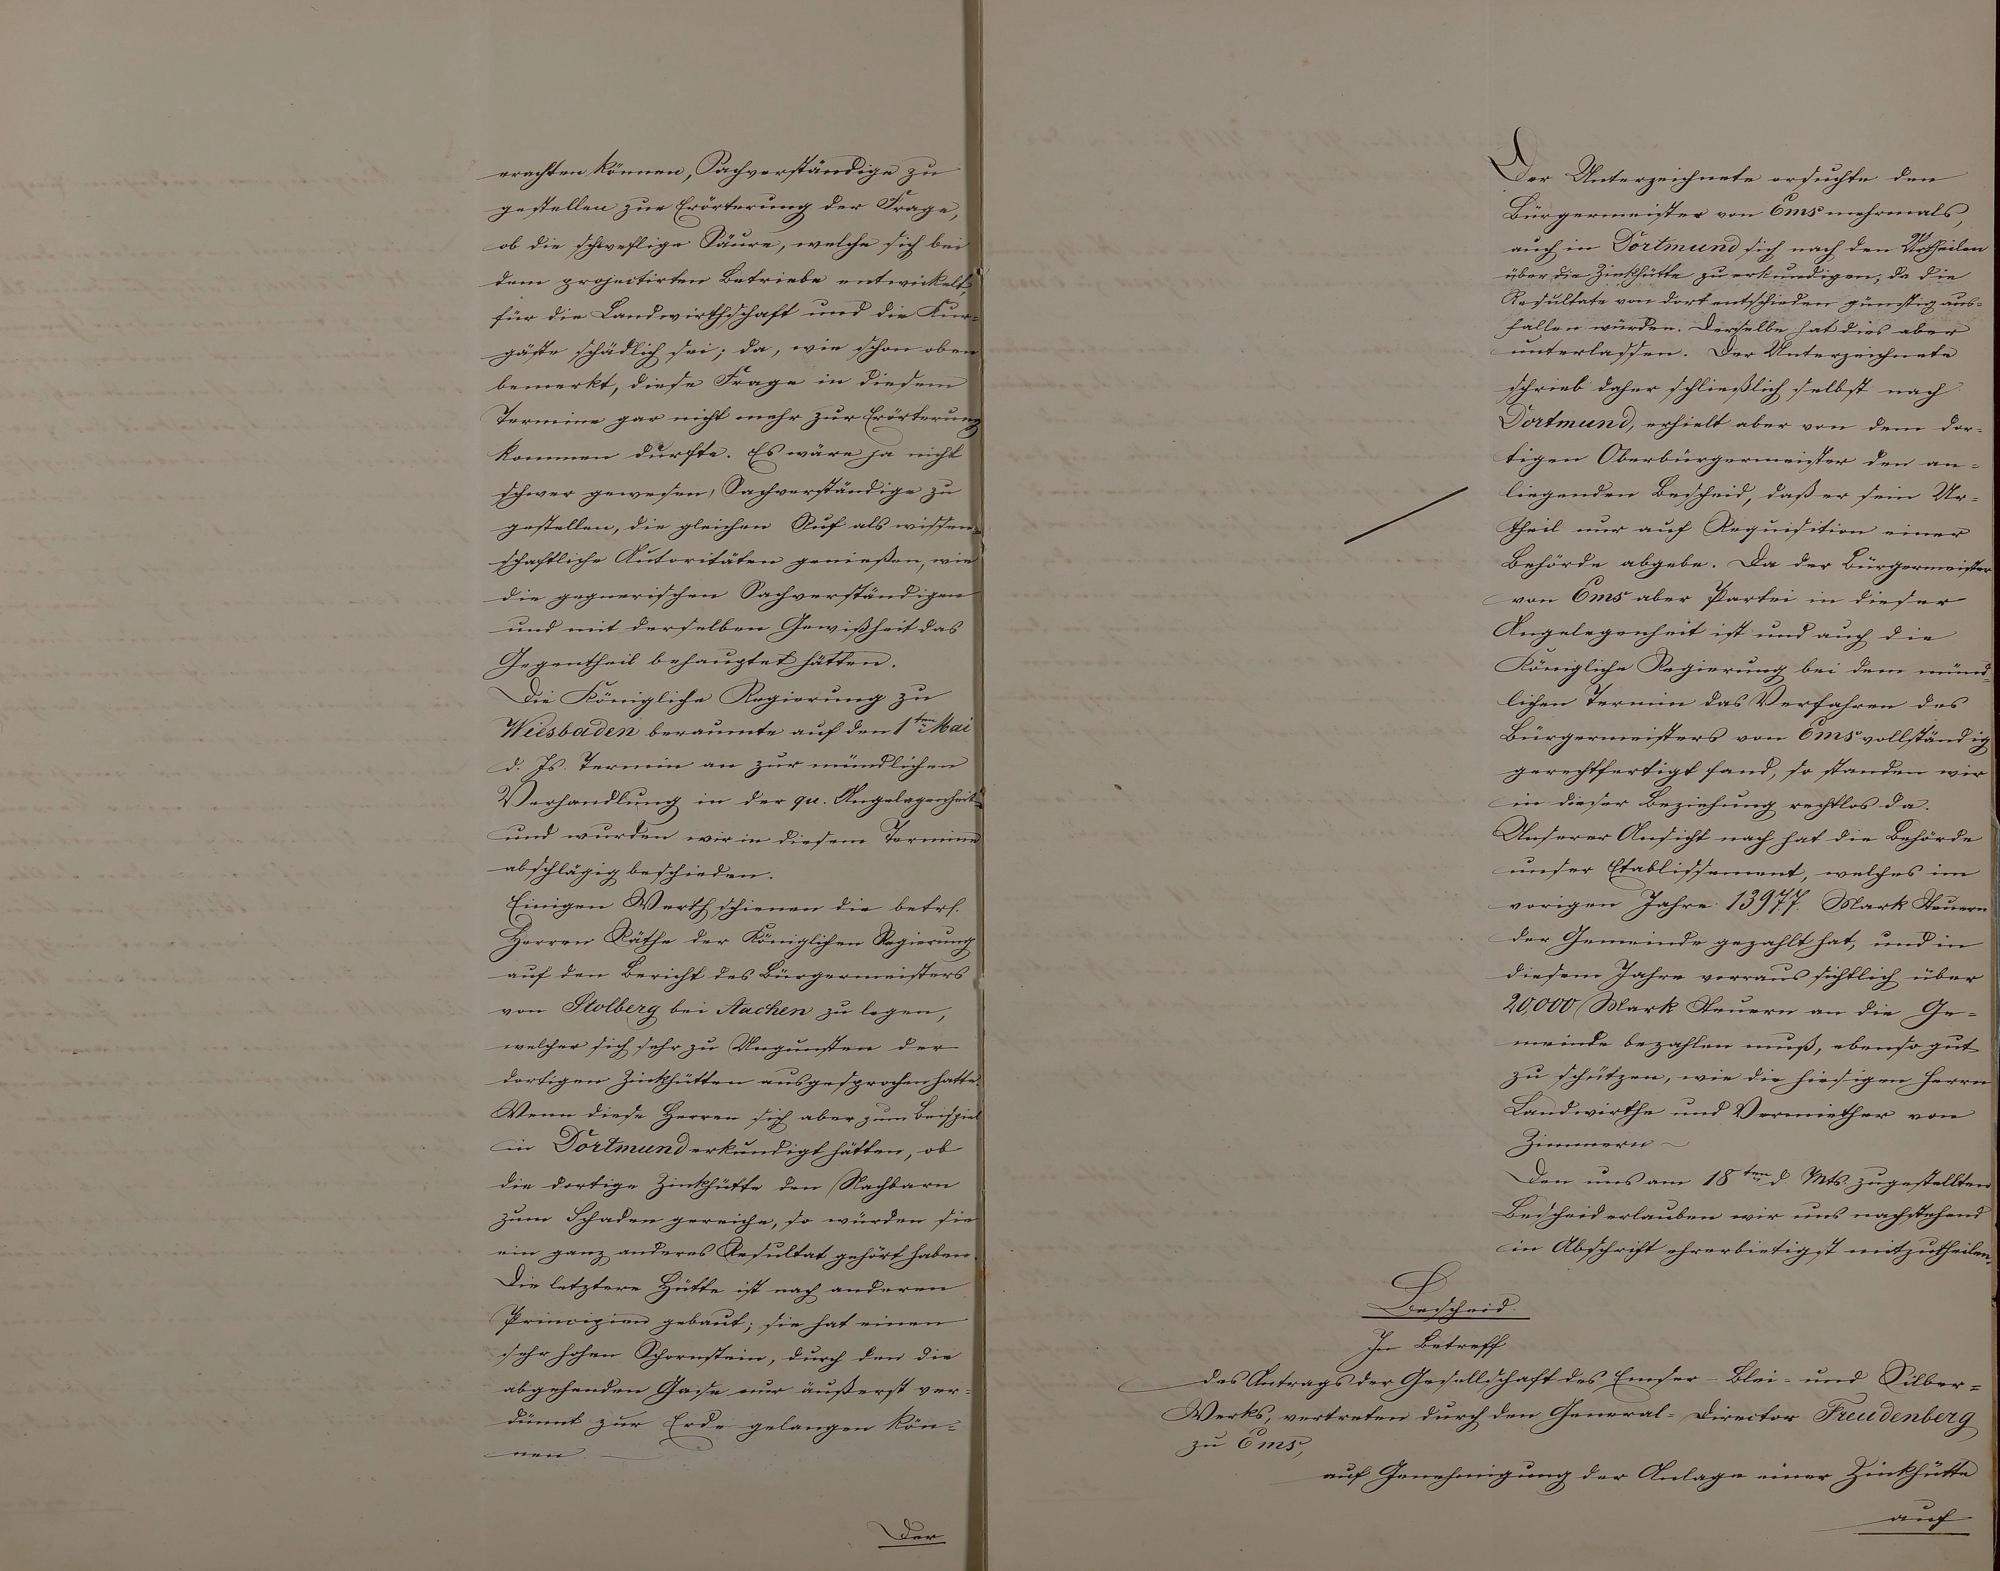 erachten können, Sachverständige zu
gestellen zur Erörterung der Frage,
ob die schweflige Säure, welche sich bei
dem projectirten Betriebe entwickelt,
für die Landwirthschaft und die Kur-
gäste schädlich sei; da, wie schon oben
bemerkt, diese Frage in diesem
Termine gar nicht mehr zur Erörterung
kommen durfte. Es wäre ja nicht
schwer gewesen, Sachverständige zu
gestellen, die gleichen Ruf als wissen-
schaftliche Autoritäten genießen, wie
die gegnerischen Sachverständigen
und mit derselben Gewißheit das
Gegentheil behauptet hätten.
Die Königliche Regierung zu
Wiesbaden beraumte auf den 1ten Mai
d. Js. Termin an zur mündlichen
Verhandlung in der qu. Angelegenheit
und wurden wir in diesem Termine
abschlägig beschieden.
Einigen Werth schienen die betrf.
Herren Räthe der Königlichen Regierung
auf den Bericht des Bürgermeisters
von Stolberg bei Aachen zu legen,
welcher sich sehr zu Ungunsten der
dortigen Zinkhütten ausgesprochen hatte.
Wenn diese Herren sich aber zum Beispiel
in Dortmund erkundigt hätten, ob
die dortige Zinkhütte den Nachbarn
zum Schaden gereiche, so würden sie
ein ganz anderes Resultat gehört haben.
Die letztere Hütte ist nach anderen
Principien gebaut; sie hat einen
sehr hohen Schornstein, durch den die
abgehenden Gase nur äußerst ver-
dünnt zur Erde gelangen kön-
nen.
Der
Der Unterzeichnete ersuchte den
Bürgermeister von Ems mehrmals,
auch in Dortmund sich nach den Urtheilen
über die Zinkhütte zu erkundigen, da die
Resultate von dort entschieden günstig aus-
fallen würden. Derselbe hat dies aber
unterlassen. Der Unterzeichnete
schrieb daher schließlich selbst nach
Dortmund, erhielt aber von dem dor-
tigen Oberbürgermeister den an-
liegenden Bescheid, daß er sein Ur-
theil nur auf Requisition einer
Behörde abgebe. Da der Bürgermeister
von Ems aber Partei in dieser
Angelegenheit ist und auch die
Königliche Regierung bei dem münd-
lichen Termin das Verfahren des
Bürgermeisters von Ems vollständig
gerechtfertigt fand, so standen wir
in dieser Beziehung rechtlos da.
Unserer Ansicht nach hat die Behörde
unser Etablissement, welches im
vorigen Jahre 13977. Mark Steuern
der Gemeinde gezahlt hat, und in
diesem Jahre vorraussichtlich über
20,000 Mark Steuern an die Ge-
meinde bezahlen muß, ebenso gut
zu schützen, wie die hiesigen Herrn
Landwirthe und Vermiether von
Zimmern.
Den uns am 18ten d Mts. zugestellten
Bescheid erlauben wir uns nachstehend
in Abschrift ehrerbietigst mitzutheilen.
Bescheid.
In Betreff
des Antrags der Gesellschaft des Emser-Blei- und Silber-
Werks, vertreten durch den General-Director Freudenberg
zu Ems,
auf Genehmigung der Anlage einer Zinkhütte
auf